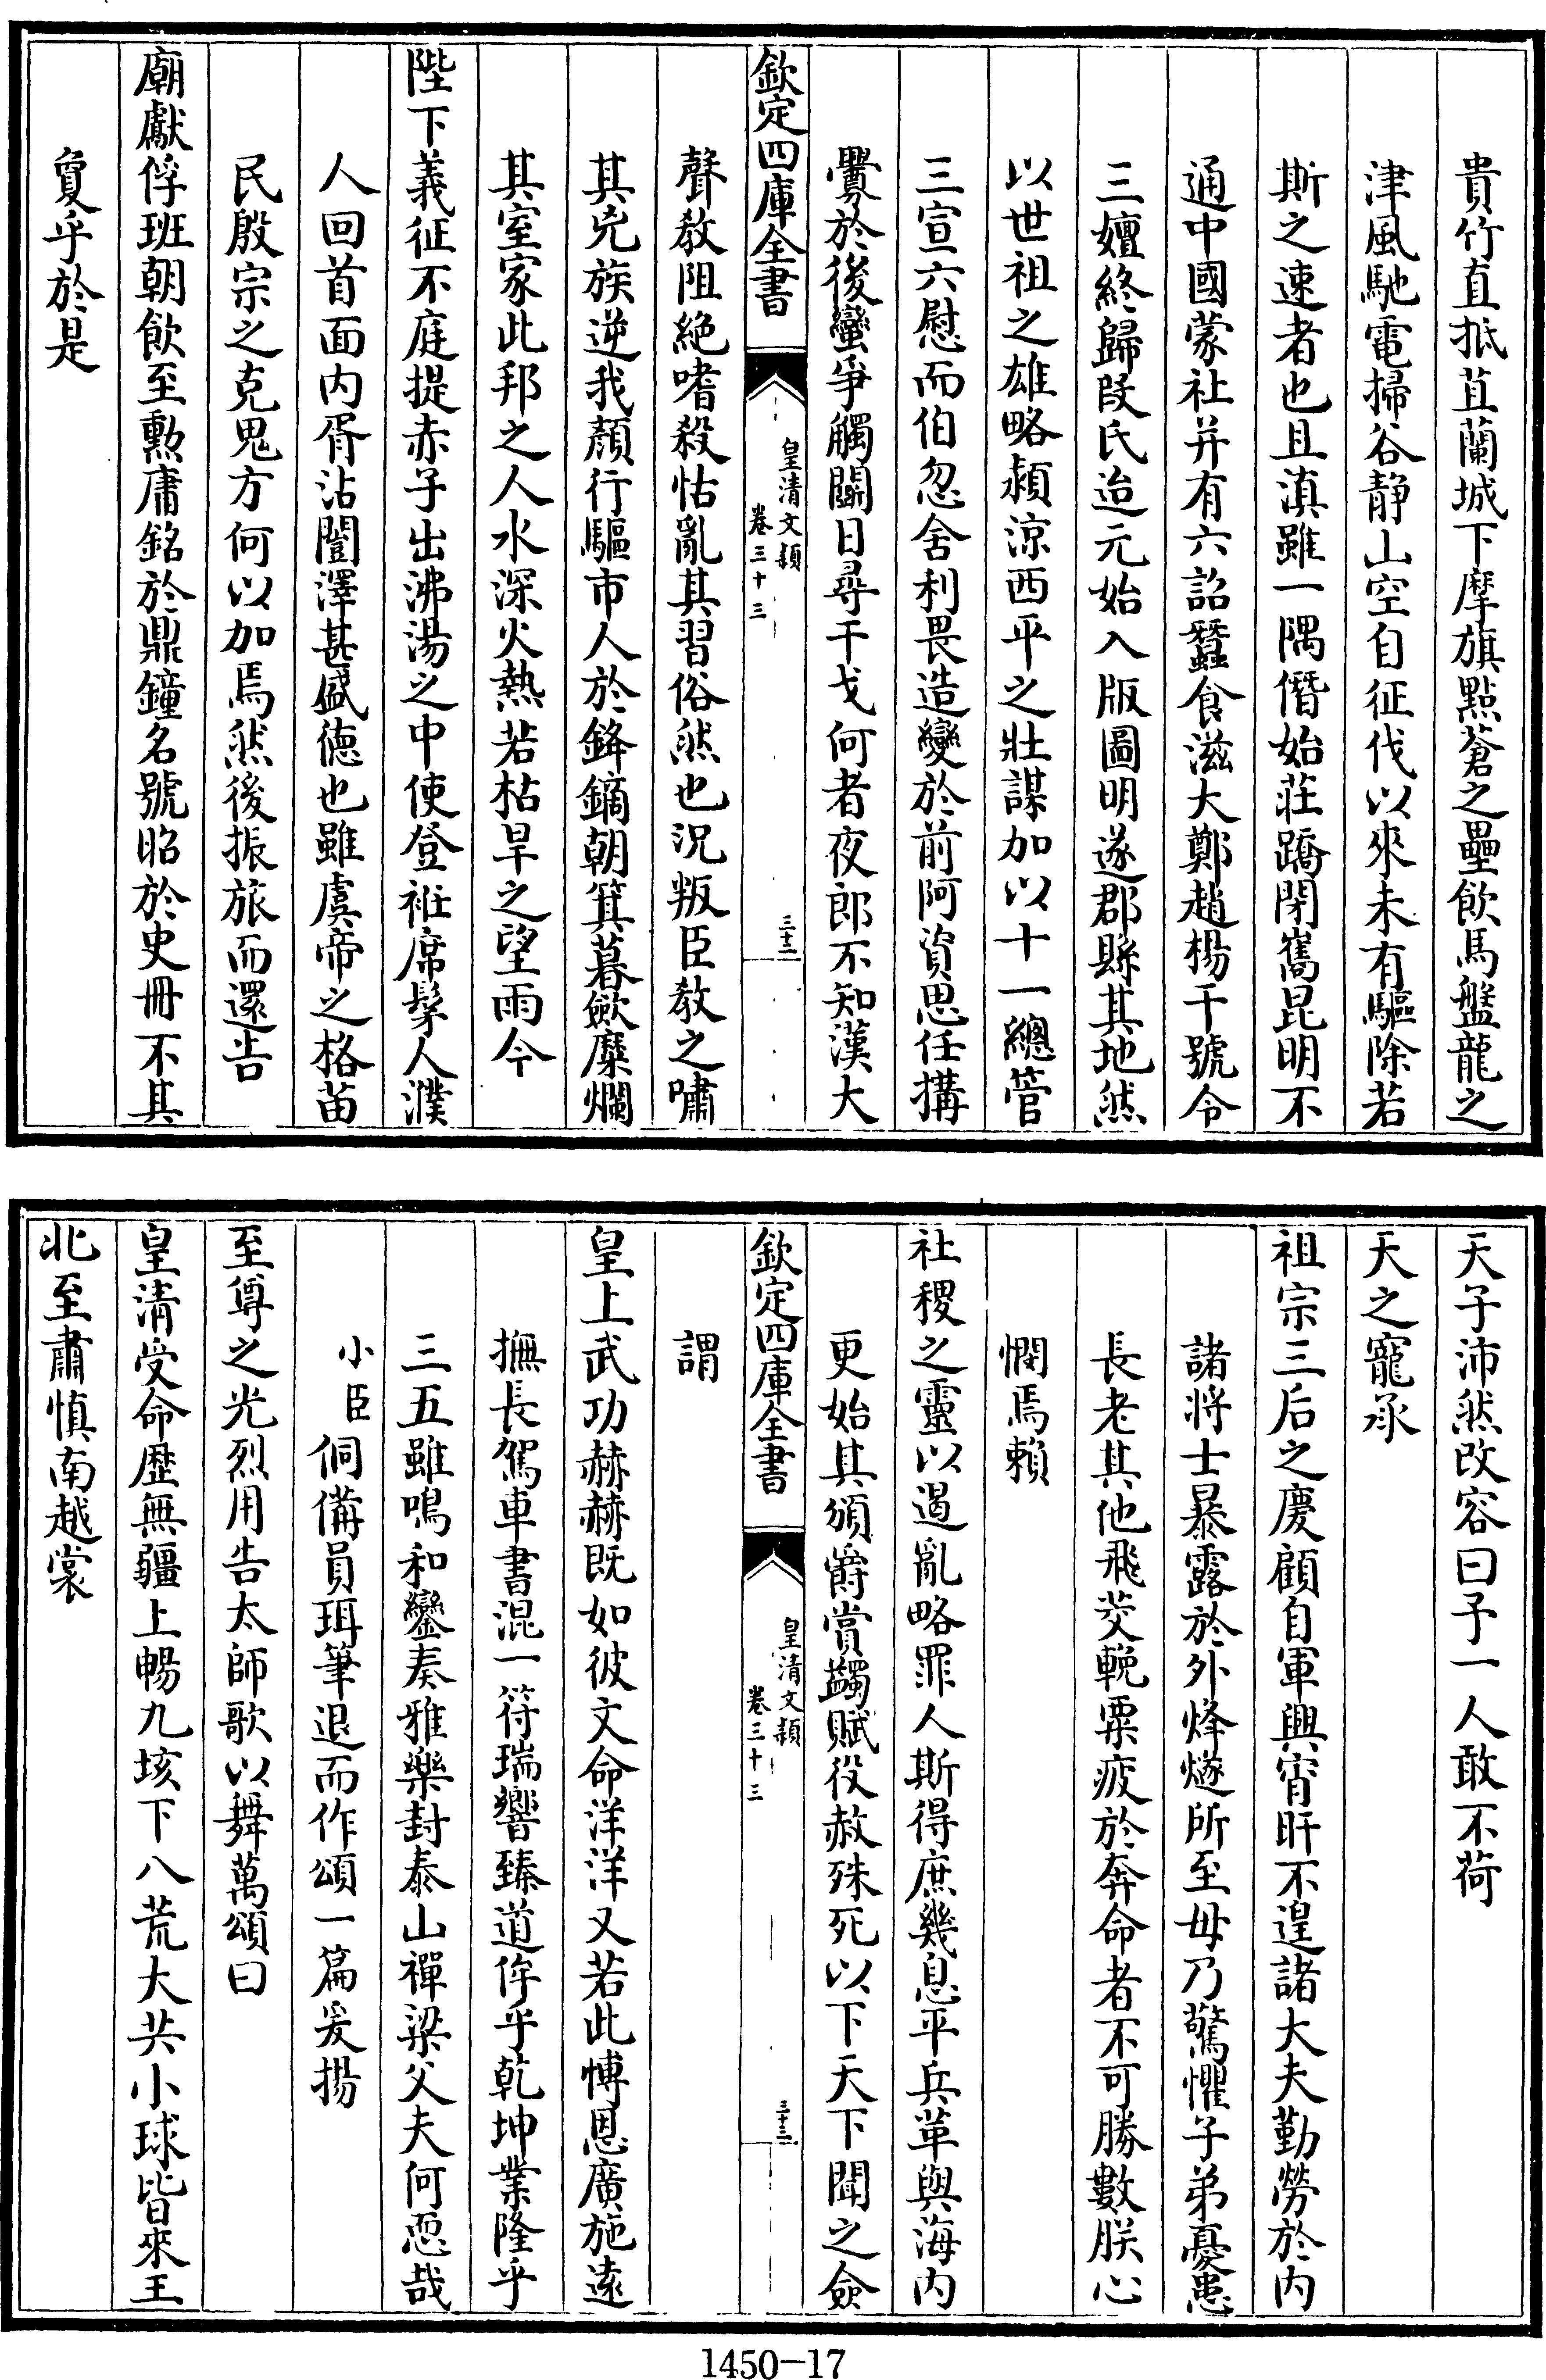 貴竹直抵苴蘭城下摩旗點蒼之壘飲馬盤龍之
津風馳電掃谷静山空自征伐以來未有驅除若
斯之速者也且滇雖一隅僭始莊蹻閉嶲昆明不
通中國蒙社并有六詔蠶食滋大鄭趙楊干號令
三嬗終歸段氏迨元始入版圖明遂郡縣其地然
以世祖之雄略潁涼西平之壯謀加以十一總管
三宣六慰而伯忽舍利畏造變於前阿資思任搆
釁於後蠻爭觸鬭日尋干戈何者夜郎不知漢大
欽定四庫全書
皇清文類
卷三十三
三十二
聲教阻絕嗜殺怙亂其習俗然也況叛臣教之嘯
其兇族逆我顏行驅市人於鋒鏑朝箕暮歛糜爛
其室家此邦之人水深火熱若枯旱之望雨今
陛下義征不庭提赤子出沸湯之中使登袵席髳人濮
人回首面内胥沾闓澤甚盛徳也雖虞帝之格苗
民殷宗之克鬼方何以加焉然後振旅而還告
廟獻俘班朝飲至勲庸銘於鼎鐘名號昭於史冊不其
㑹乎於是
天子沛然改容曰予一人敢不荷
天之寵承
祖宗三后之慶顧自軍興宵旰不遑諸大夫勤勞於内
諸將士暴露於外烽燧所至毋乃驚懼子弟憂患
長老其他飛茭輓粟疲於奔命者不可勝數朕心
憫焉賴
社稷之靈以遏亂略罪人斯得庶幾息平兵革與海内
更始其頒爵賞蠲賦役赦殊死以下天下聞之僉
欽定四庫全書
皇清文類
卷三十三
三十三
謂
皇上武功赫赫既如彼文命洋洋又若此博恩廣施遠
撫長駕車書混一符瑞響臻道侔乎乾坤業隆乎
三五雖鳴和鑾奏雅樂封泰山禪梁父夫何恧哉
小臣侗備員珥筆退而作頌一篇爰揚
至尊之光烈用告太師歌以舞萬頌曰
皇清受命歴無疆上暢九垓下八荒大共小球皆來王
北至肅慎南越裳
1450-17